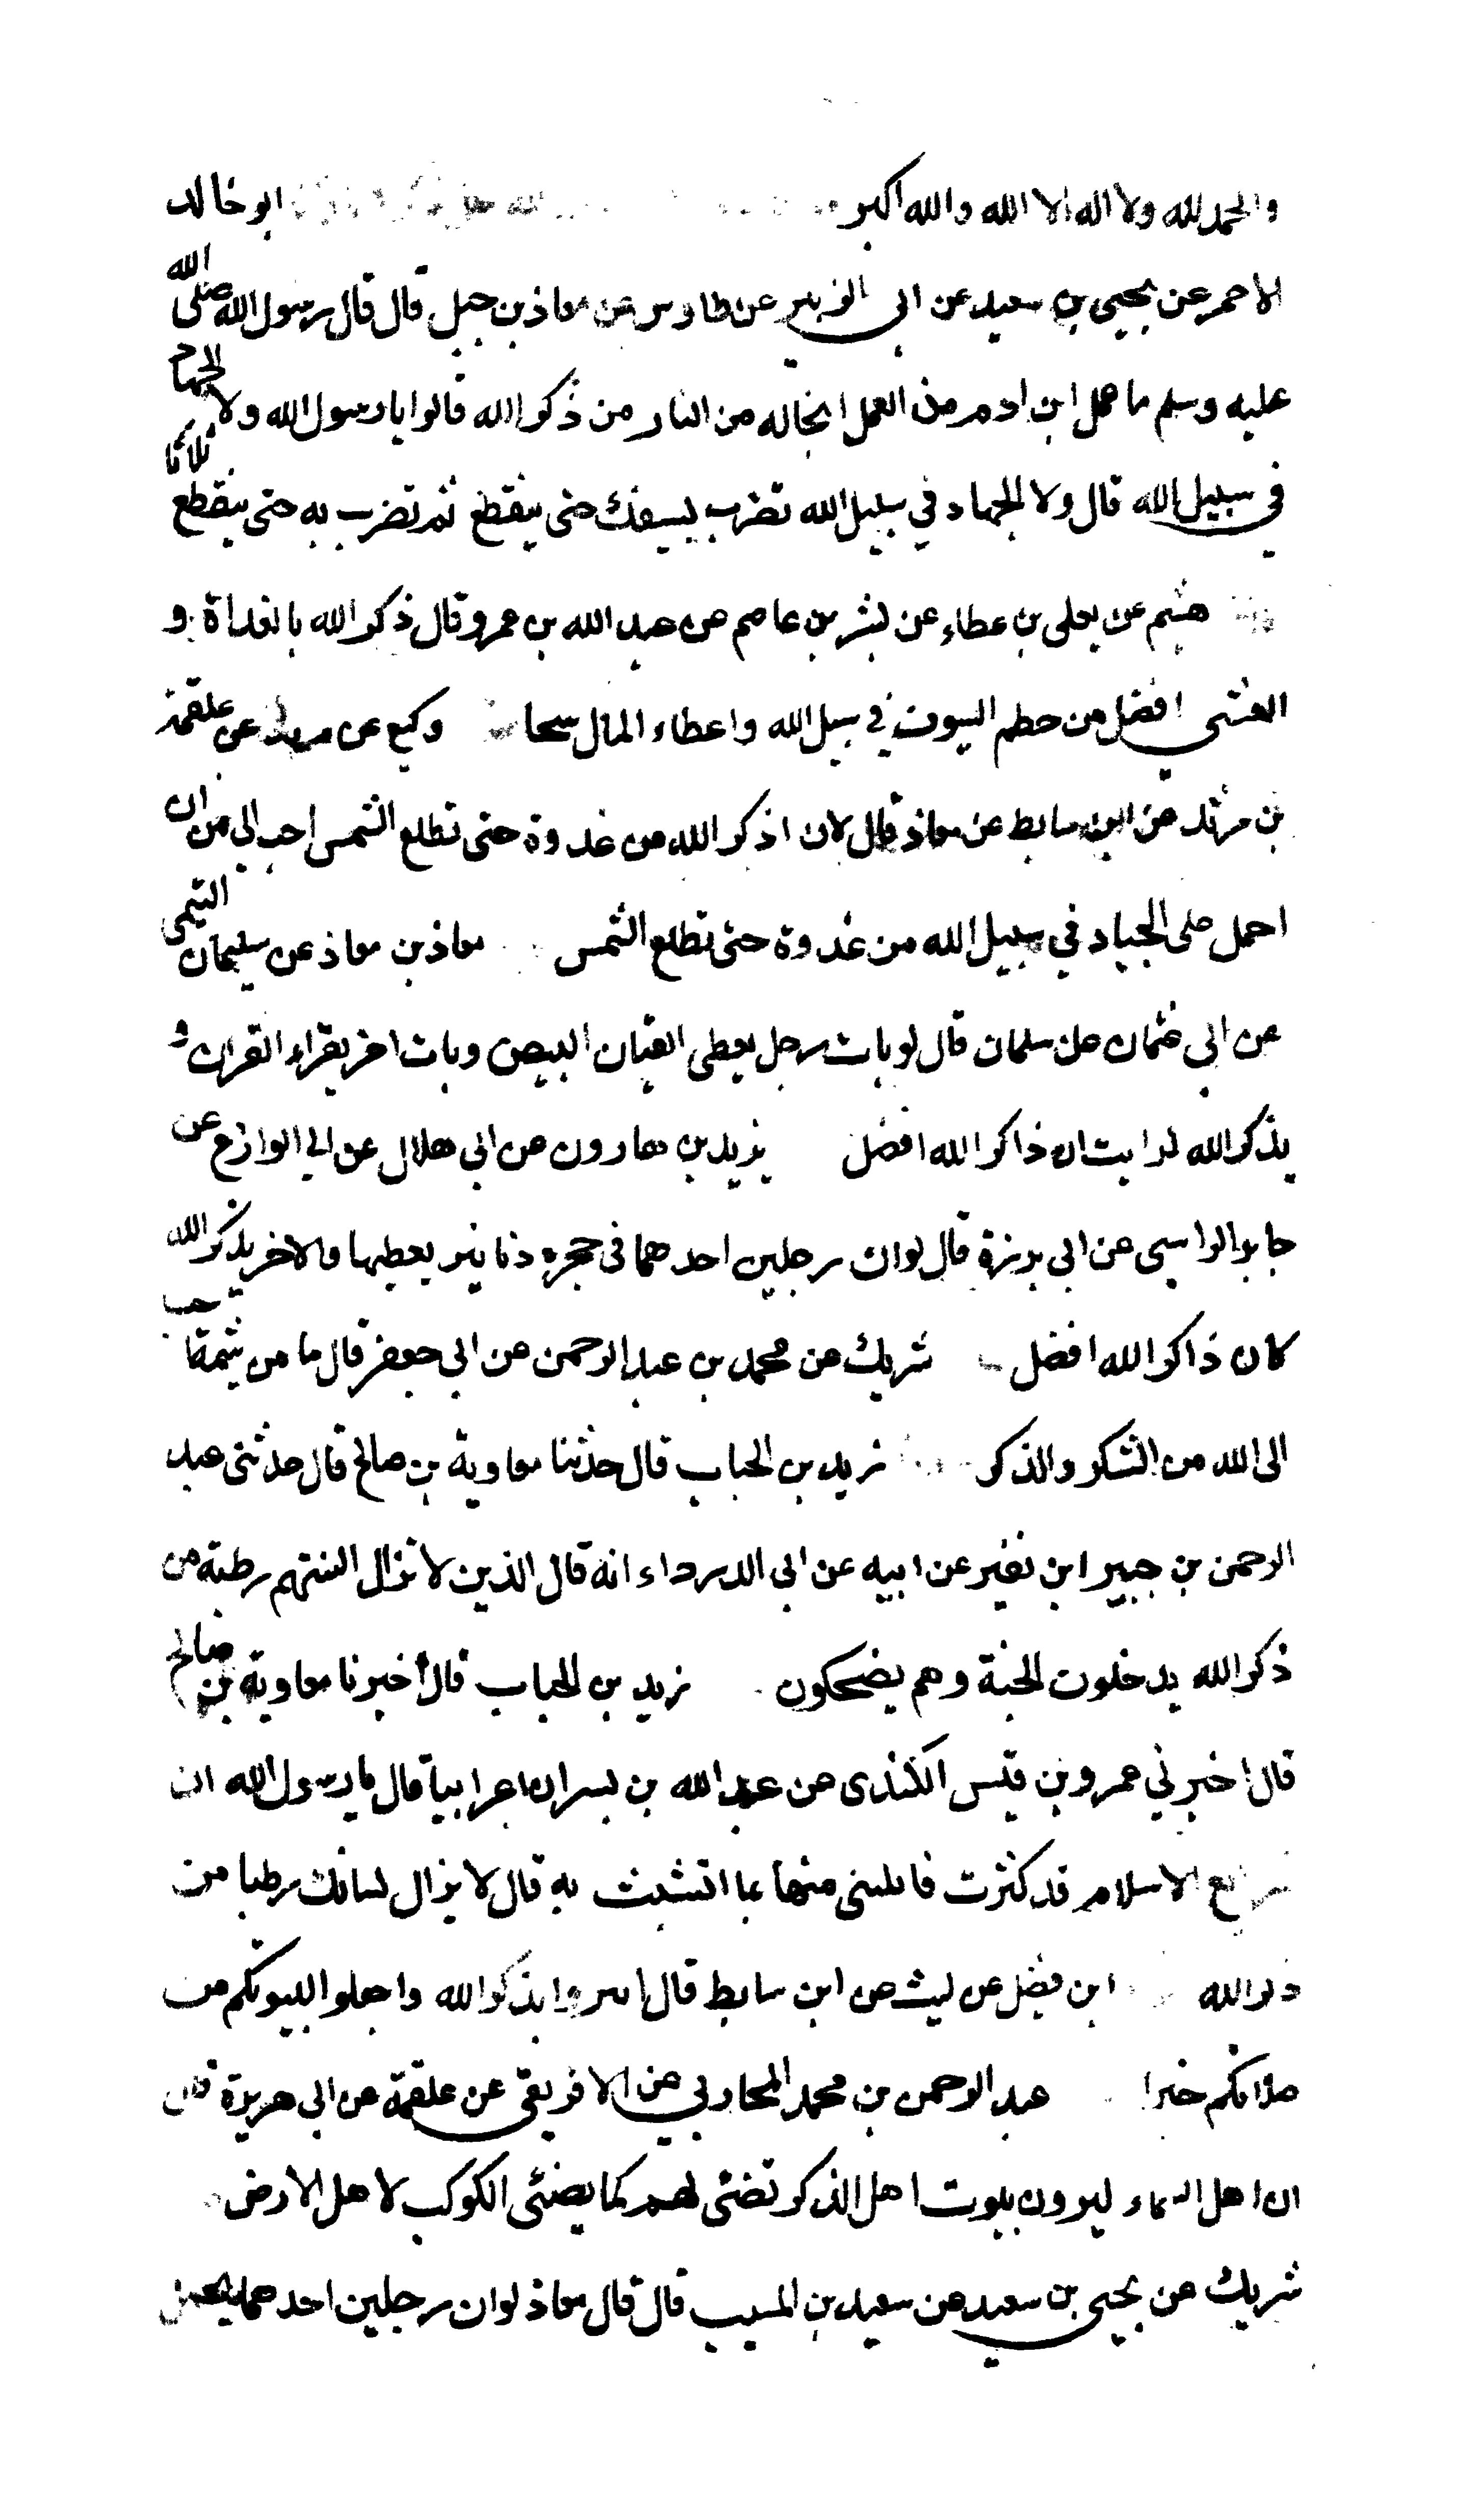 والحمد لله ولا اله الا الله والله اكبر ابو خالد
الاحمر عن يحيى بن سعيد عن ابى الزبير عن طاوس عن معاذ بن جبل قال قال رسول الله صلى الله
عليه وسلم ما عمل ابن ادم من العمل انجا له من النار من ذكر الله قالوا يا رسول الله ولا الجهاد
في سبيل الله قال ولا الجهاد في سبيل الله تضرب بسيفك حتى ينقطع ثم تضرب به حتى ينقطع ثلاثا
هشيم عن يعلى بن عطاء عن بشر بن عاصم عن عبد الله بن عمرو قال ذكر الله بالغداة و
العشى افضل من حطم السيوف في سبيل الله واعطاء المال سحا وكيع عن عن علقمة
بن مرثد عن ابن سابط عن معاذ قال لان اذكر الله من غدوة حتى تطلع الشمس احب الى من ان
احمل على الجياد في سبيل الله من غدوة حتى تطلع الشمس معاذ بن معاذ عن سليمان التيمى
عن ابي عثمان عن سلمان قال لو بات رجل يعطى القيان البيض وبات اخر يقراء القران و
يذكر الله لرايت ان ذاكر الله افضل يزيد بن هارون عن ابي هلال عن ابي الوازع عن
جابر الراسبى عن ابى برزة قال لو ان رجلين احدهما فى حجره دنانير يعطيها والاخر يذكر الله
كان ذاكر الله افضل شريك عن محمد بن عبد الرحمن عن ابى جعفر قال ما من شئ احب
الى الله من الشكر والذكر زيد بن الحباب قال حدثنا معاوية بن صالح قال حدثنى عبد
الرحمن بن جبير ابن نفير عن ابيه عن ابى الدرداء انه قال الذين لا تزال السنتهم رطبة من
ذكر الله يدخلون الجنة وهم يضحكون زيد بن الحباب قال أخبرنا معاوية بن صالح
قال اخبرني عمرو بن قيس الكندى عن عبد الله بن بسر ان اعرابيا قال يا رسول الله ان
شرائع الاسلام قد كثرت فانبئنى منها بما اتشبث به قال لا يزال لسانك رطبا من
ذكر الله ابن فضيل عن ليث عن ابن سابط قال بذكر الله واجعلوا لبيوتكم من
صلاتكم خيرا عبد الرحمن بن محمد المحاربي عن الافريقى عن علقمة عن ابى هريرة قال
ان اهل السماء ليرون بيوت اهل الذكر تضئى لهم كما يضئى الكوكب لاهل الارض
شريك عن يحيى بن سعيد عن سعيد بن المسيب قال قال معاذ لو ان رجلين احدهما يحمل